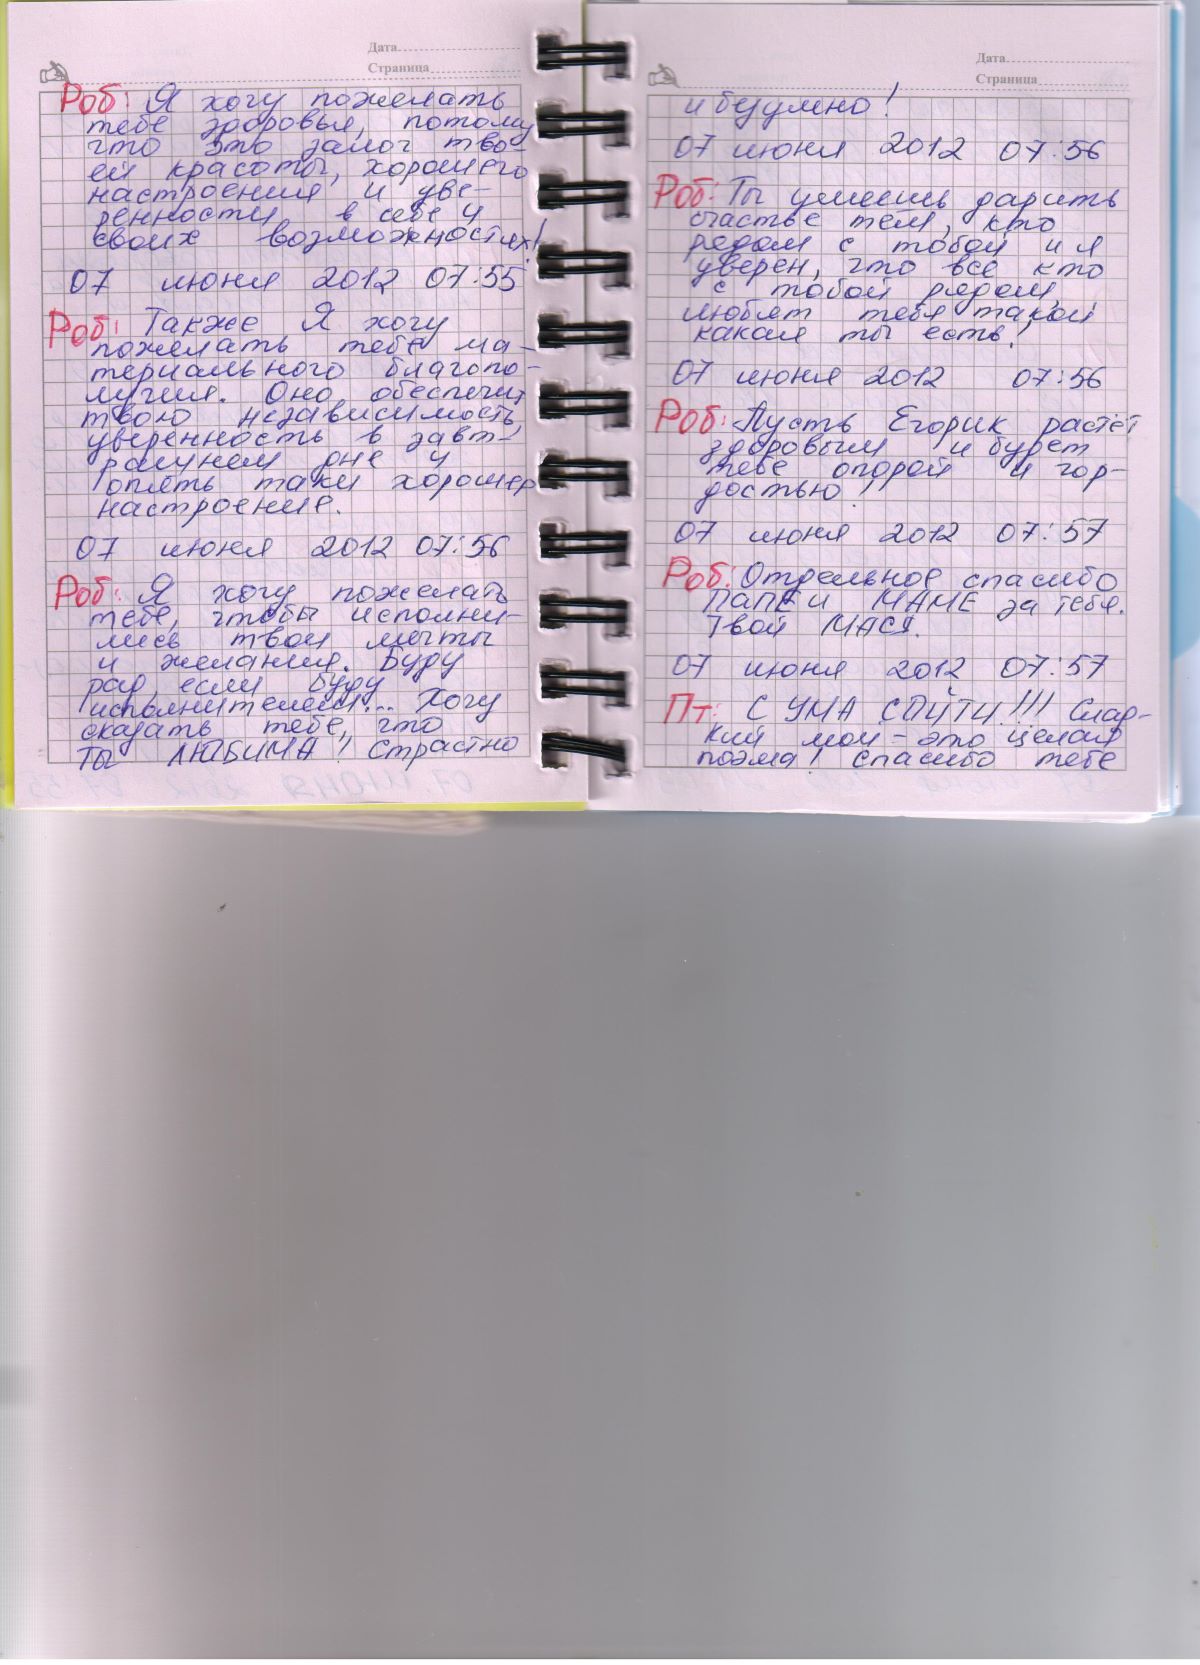 Дата
Страница
Роб: Я хочу пожелать
тебе здоровья, потому
что это залог тво-
ей красоты, хорошего
настроения и уве-
ренности в себе и
своих возможностях!
07 июня 2012 07:55
Роб: Также Я хочу
пожелать тебе ма-
териального благопо-
лучия. Оно обеспечит
твою независимость,
уверенность в завт-
рашнем дне и
опять таки хорошее
настроение.
07 июня 2012 07:56
Роб: Я хочу пожелать
тебе, чтобы исполни-
лись твои мечты
и желания. Буду
рад, если буду
исполнителем... Хочу
сказать тебе, что
ТЫ ЛЮБИМА! Страстно
Дата
Страница
и безумно!
07 июня 2012 07:56
Роб: Ты умеешь дарить
счастье тем, кто
рядом с тобой и я
уверен, что все кто
с тобой рядом,
любят тебя такой
какая ты есть!
07 июня 2012 07:56
Роб: Пусть Егорик растёт
здоровым и будет
тебе опорой и гор-
достью!
07 июня 2012 07:57
Роб: Отдельное спасибо
ПАПЕ и МАМЕ за тебя.
Твой МАСЯ.
07 июня 2012 07:57
Пт: С УМА СОЙТИ!!! Слад-
кий мой - это целая
поэма! Спасибо тебе